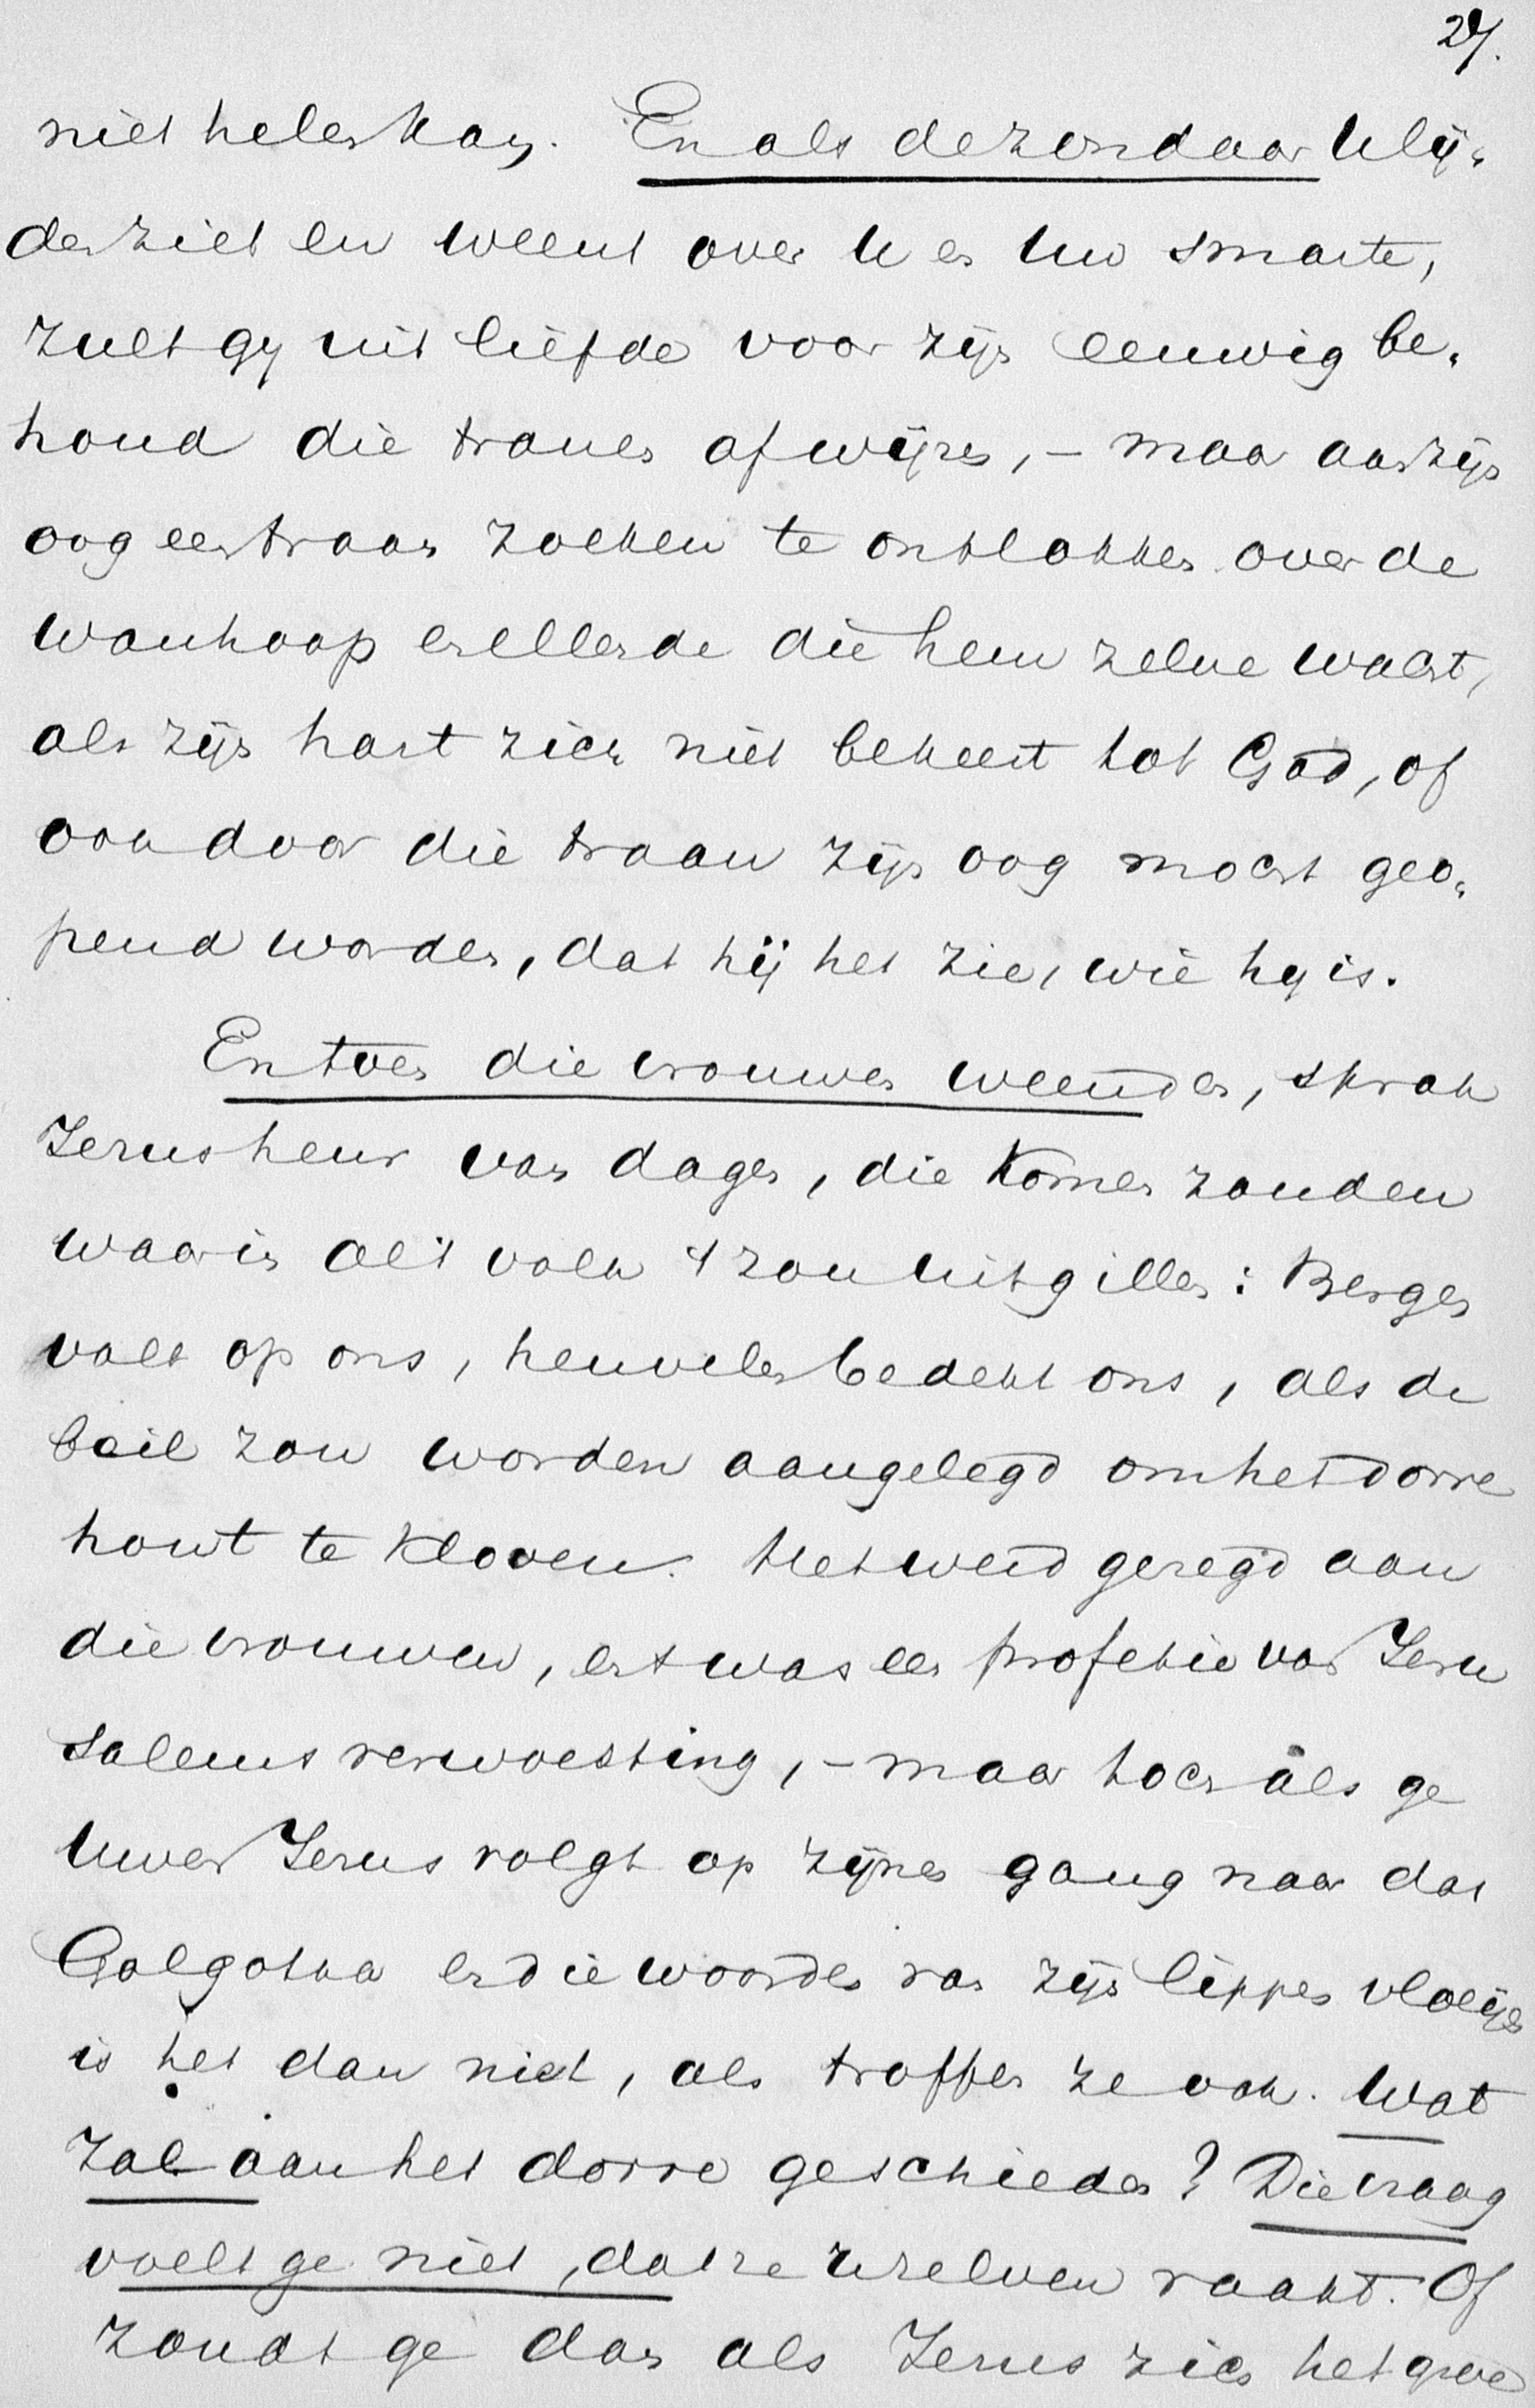 27.
niet helen kan. En als de zondaar U lij-
den ziet en weent over U en Uw smarte,
zult gy uit liefde voor zijn eeuwig be-
houd die tranen afwijzen, – maar aan zijn
oog een traan zoeken te ontlokken over de
wanhoop en ellende die hem zelve wacht,
als zijn hart zich niet bekeert tot God, of
ook door die traan zijn oog mocht geo-
pend worden, dat hij het zie, wie hy is.
En toen die vrouwen weenden, sprak
Jezus heur van dagen, die komen zouden
waarin al 't volk 't zou uitgillen: Bergen
valt op ons, heuvelen bedekt ons, als de
bijl zou worden aangelegd om het dorre
hout te kloven. Het werd gezegd aan
die vrouwen, en 't was een profetie van Jeru
salems verwoesting, – maar toch als ge
Uwen Jezus volgt op zijnen gang naar dat
Golgotha en die woorden van zijn lippen vloeijen
is het dan niet, als troffen ze ook. Wat
zal aan het dorre geschieden? Die vraag
voelt ge niet, dat ze Uzelven raakt. Of
zoudt ge dan als Jezus zich het groene